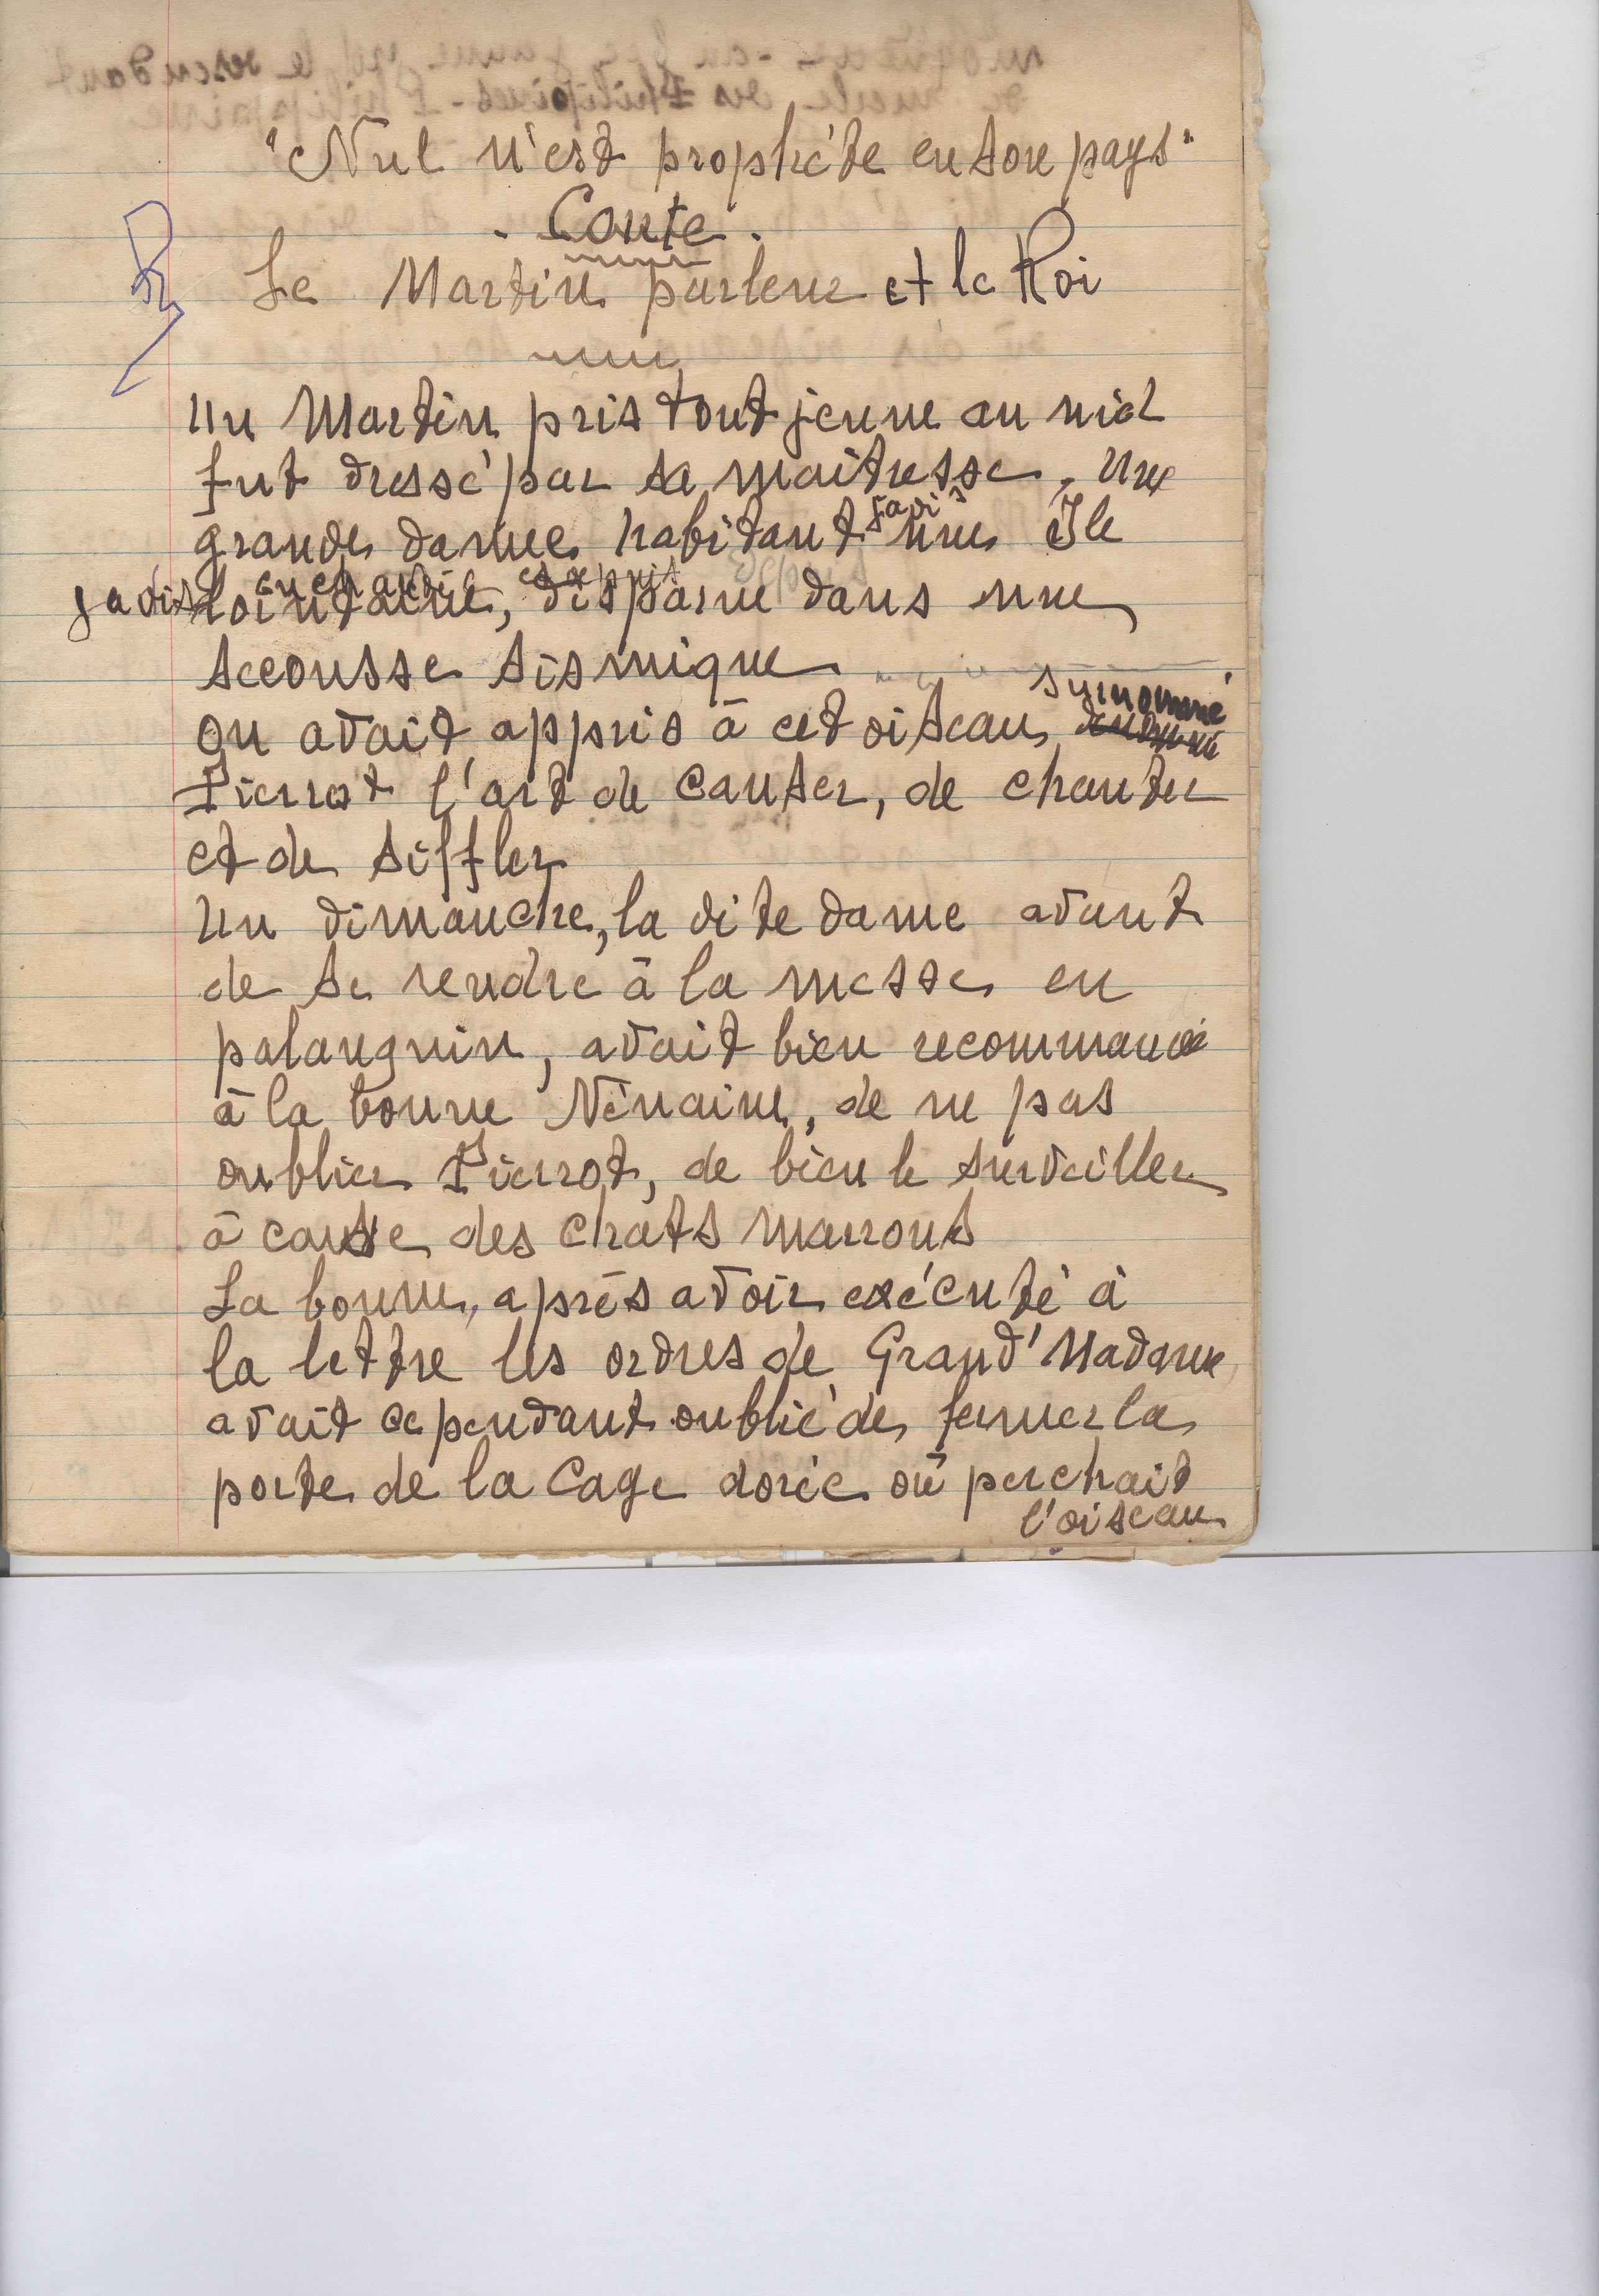 "Nul n'est prophète en son pays"
- Conte -
Le Martin parleur et le Roi
Un Martin pris tout jeune au nid
fut dressé par sa maitresse, une
grande dame habitant jadis une Ile
jadis enchantée et depuis
lointaine, disparue dans une
secousse sismique
On avait appris à cet oiseau surnommé
Pierrot l'art de causer, de chanter
et de siffler
Un dimanche, la dite dame avant
de se rendre à la messe en
palanquin, avait bien recommandé
à la bonne Nénaine, de ne pas
oublier Pierrot, de bien le surveiller
à cause des chats marrons
La bonne, après avoir exécuté à
la lettre les ordres de Grand'Madame
avait cependant oublié de fermer la
porte de la Cage dorée où perchait
l'oiseau